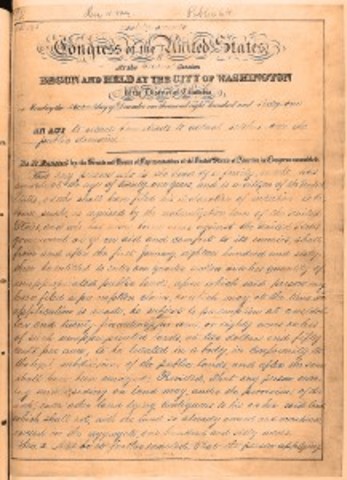 Public
Congress of the United States,
At the Session
BEGUN AND HELD AT THE CITY OF WASHINGTON
in the District of Columbia
Monday the day of December one thousand eight hundred and
AN ACT to secure Homesteads to actual settlers on the
public domain.
Be it Enacted by the Senate and House of Representatives of the United States of America in Congress assembled,
That any person who is the head of a family, or who has
arrived at the age of twenty one years, and is a citizen of the United
States, or who shall have filed his declaration of intention to
become such, as required by the naturalization laws of the United
States, and who has never borne arms against the United States
government or given aid and comfort to its enemies, shall
from and after the first January, eighteen hundred and sixty
three be entitled to enter one quarter section or a less quantity of
unappropriated public lands, upon which said person may
have filed a preemption claim, or which may, at the time the
application is made, be subject to preemption at one dollar
and twenty five cents, or less, per acre; or eighty acres or less
of such unappropriated lands, at two dollars and fifty
cents per acre, to be located in a body, in conformity to
the legal subdivisions of the public lands, and after the same
shall have been surveyed: Provided, That any person own
ing and residing on land may, under the provisions of this
act, enter other land lying contiguous to his or her said land,
which shall not, with the land so already owned and occupied,
exceed in the aggregate one hundred and sixty acres.
Sec. 2. And be it further enacted, That the person applying